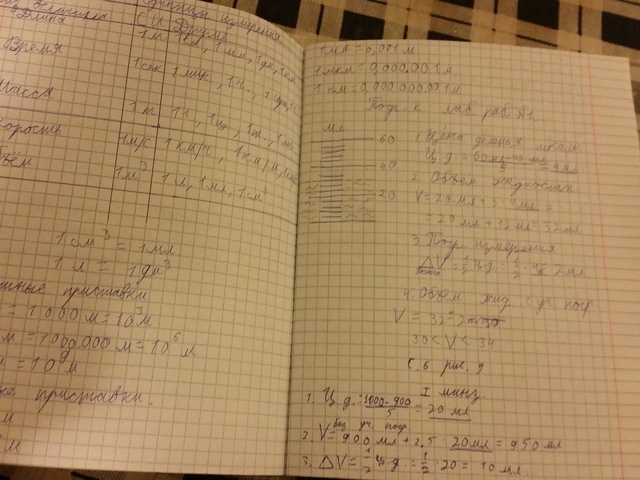 единицы измерения
Длина
СИ Другие
1м
Время
1сек
Масса
1т, 1м
1м/с 1км/ч, 1км/м,
1м³ 1л, 1мл, 1см³
1см³ = 1мл
1л = 1дм³
приставки
= 1000м = 10³м
= 1000.000м = 10⁶м
= 10⁹м
приставки.
м
м
1мм = 0,001м
1мкм = 0,000.001м
1нм = 0,000.000.001м
Подг. к лаб. раб. №1
мл
60
40
20
1. Цена деления шкалы
Ц.д. = = 4мл
2. Объём жидкости
V = 20мл + 3·4мл =
= 20мл + 12мл = 32мл
3. Погр. измерения
ΔV = 1/2 ц.д. = 1/2 · 4 = 2мл
4. Объём жид с уч. погр.
V = 32±2мл
30 < V < 34
С. 6 рис. 9
I менз.
1. Ц.д. = 1000-900/5 = 20 мл
без уч. погр.
2. V = 900мл + 2.5 20мл = 950мл
3. ΔV = 1/2 ц.д. = 1/2 · 20 = 10мл.